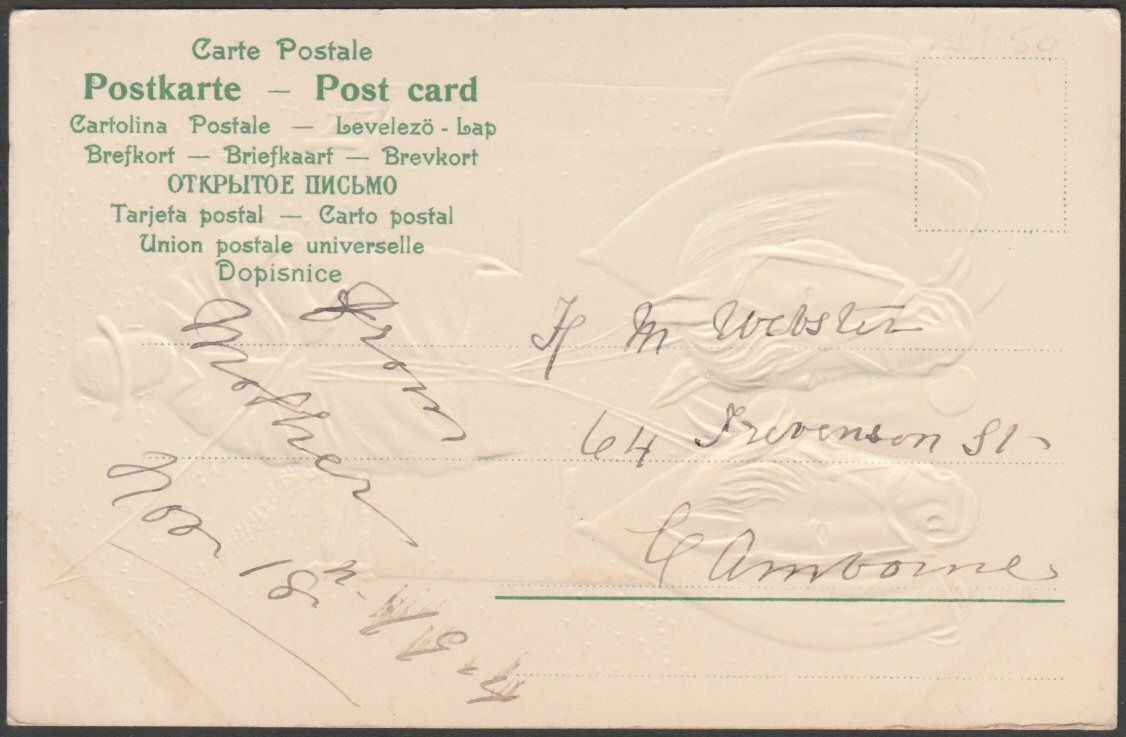 £1.50
Carte Postale
Postkarte — Post card
Cartolina Postale — Levelezö - Lap
Brefkort — Briefkaart — Brevkort
ОТКРЫТОЕ ПИСЬМО
Tarjeta postal — Carto postal
Union postale universelle
Dopisnice
From
Mother
Nov 18
H M Webster
64 Trevenson St
Camborne